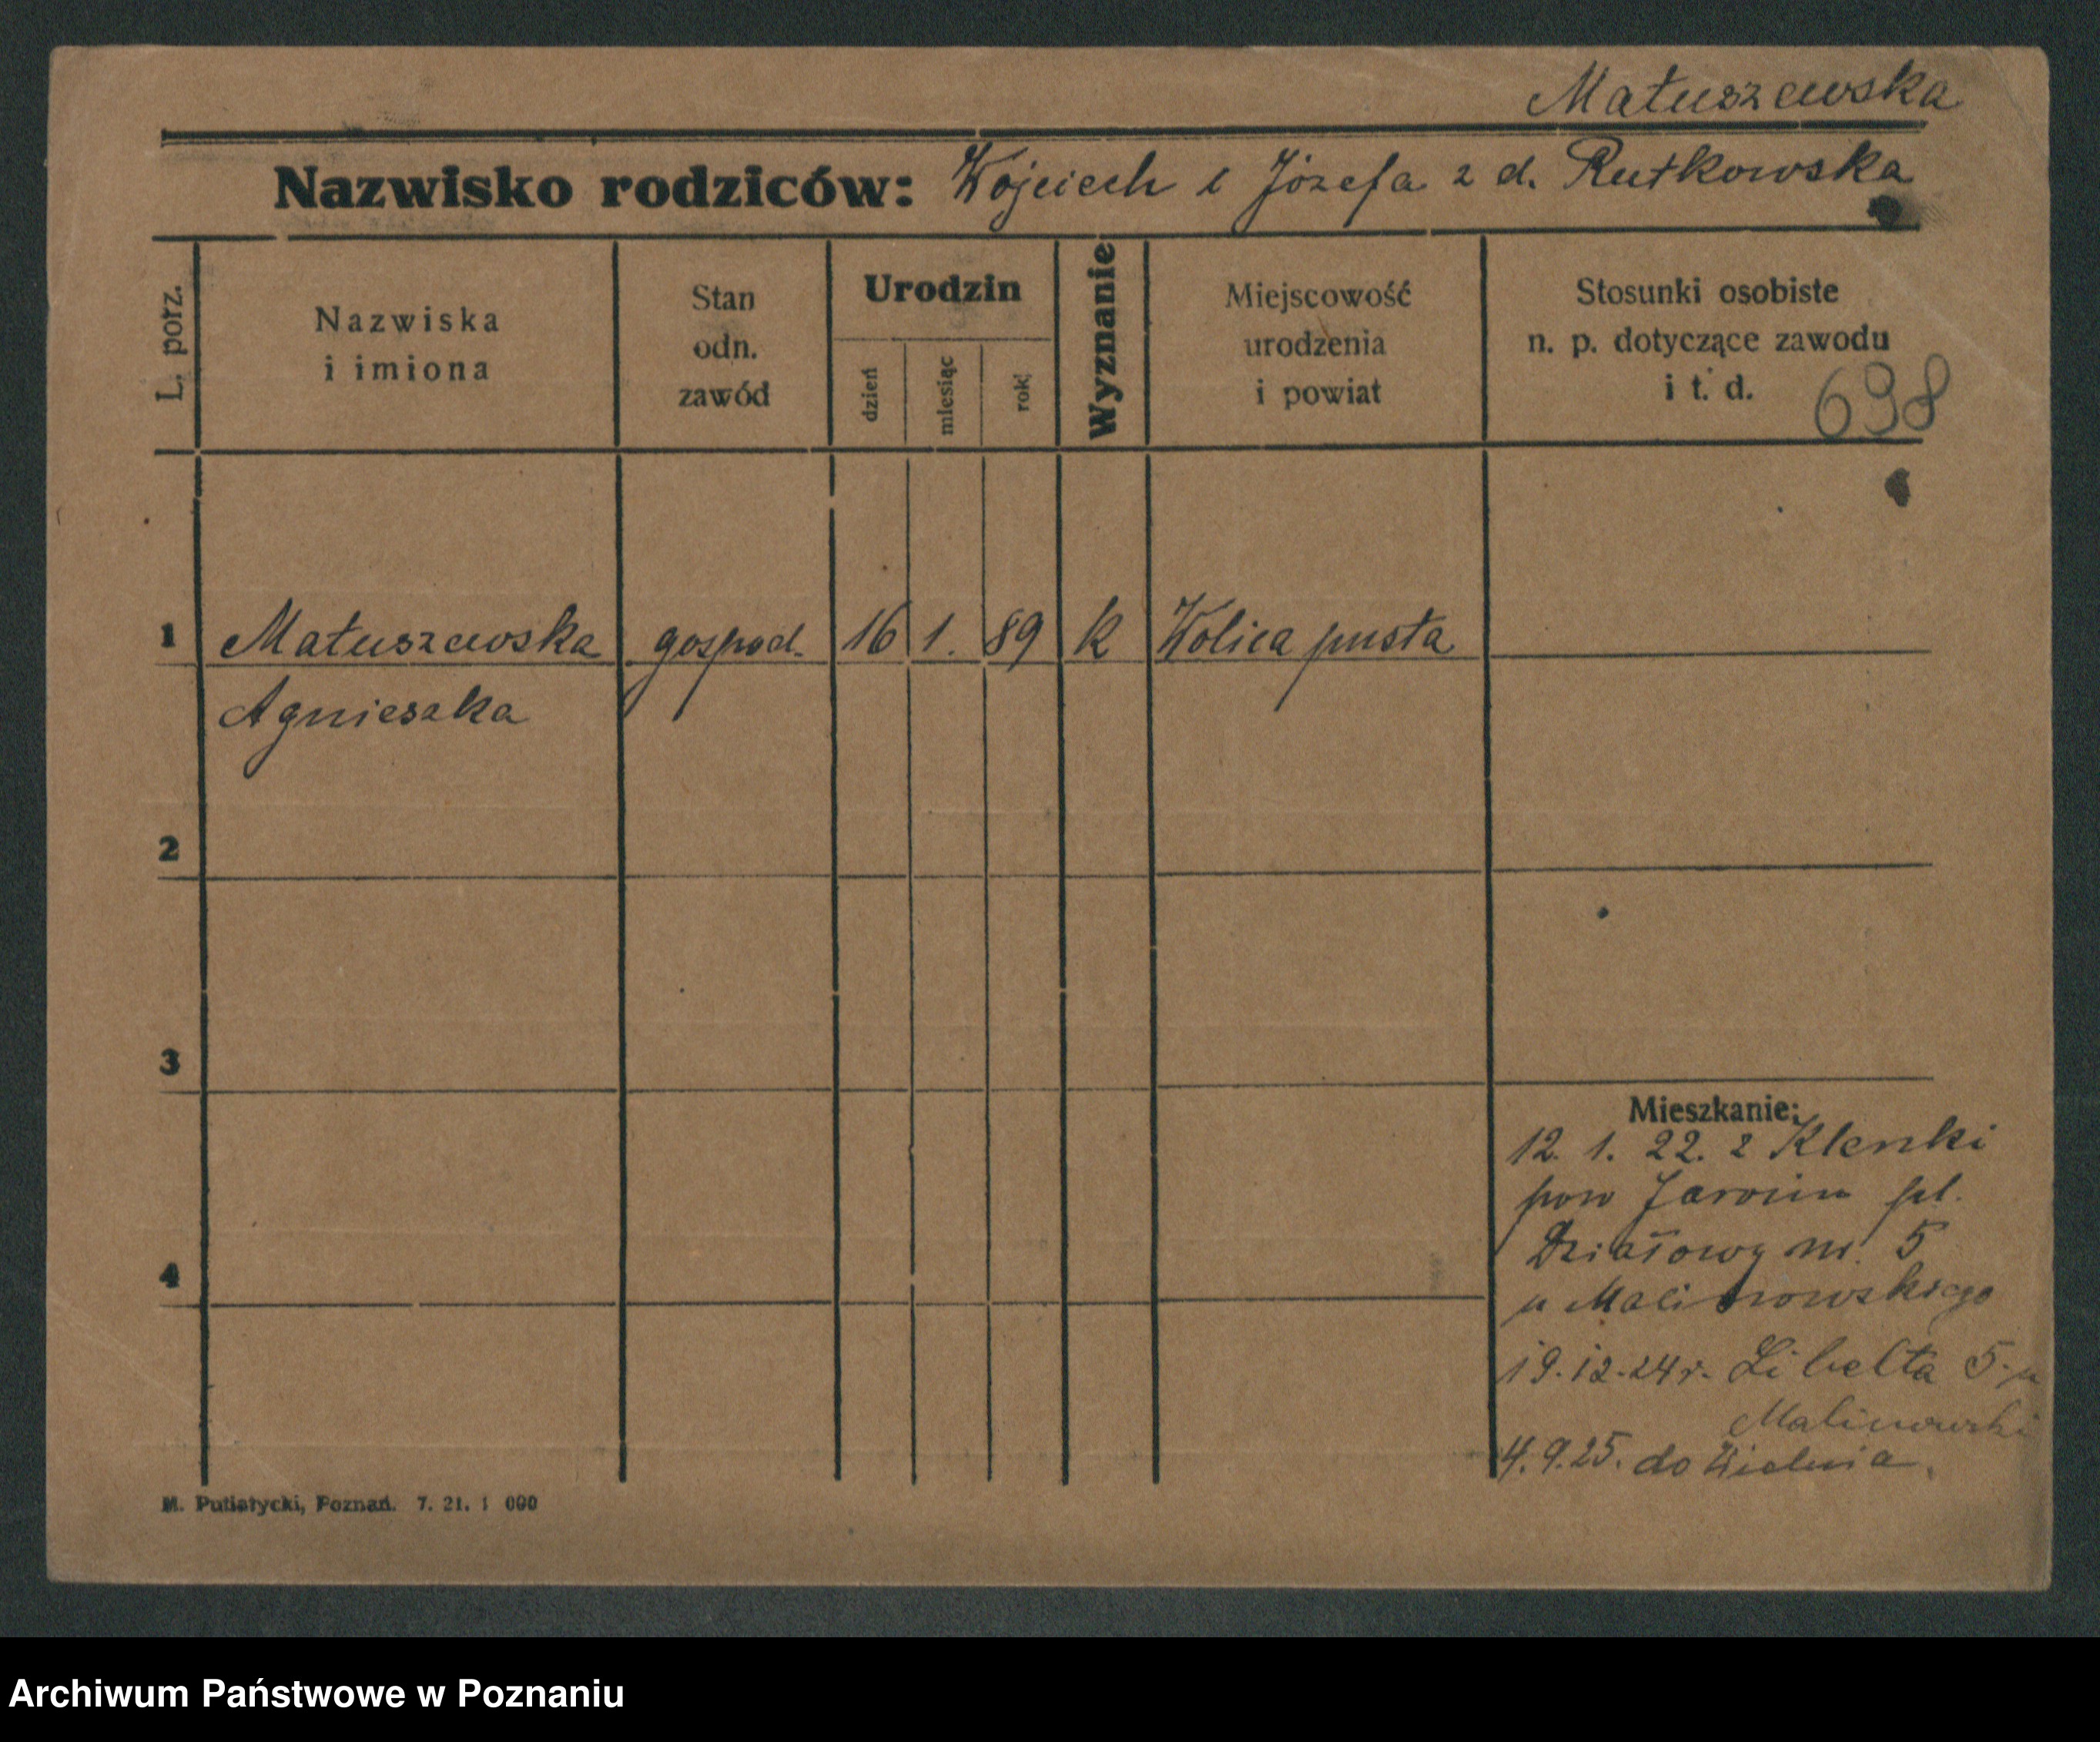 Matuszewska
Nazwisko rodziców: Wojciech i Józefa z d. Rutkowska
L. porz.
Nazwiska
i imiona
Stan
odn.
zawód
Urodzin
dzień
miesiąc
rok
Wyznanie
Miejscowość
urodzenia
i powiat
Stosunki osobiste
n. p. dotyczące zawodu
i t. d.
698
1 Matuszewska gospod. 16 1. 89 k Wolica pusta
Agnieszka
2
3
4
Mieszkanie:
12. 1. 22. z Klenki
pow Jarocin pl.
Działowy nr. 5
u Malinowskiego
19.12.24 r. Libelta 5. u
Malinowski
4.9.25. do
M. Putiatycki, Poznań. 7. 21. 1 000
Archiwum Państwowe w Poznaniu